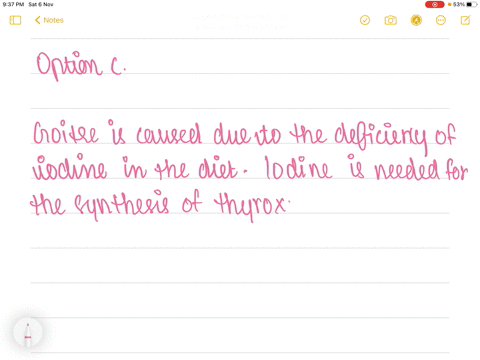 9:37 PM Sat 6 Nov
53%
Notes
Option C.
Goitre is caused due to the deficiency of
iodine in the diet. Iodine is needed for
the synthesis of thyrox